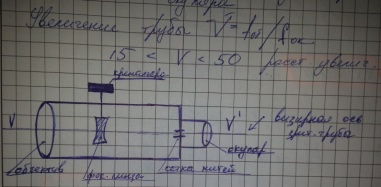 Увеличение трубы V = fоб/fок
15 < V < 50
кремальера
V
V'
визирная ось
зрит. труба
объектив
фок. линза
сетка нитей
окуляр